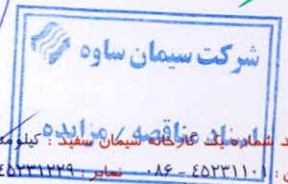 شرکت سیمان ساوه
اسناد مناقصه / مزایده
د شماره یک کارخانه سیمان سفید : کیلومت
ن : ٤٥٢٣١١٠١ - ٠٨٦ نمابر : ٤٥٢٣١٢٢٩